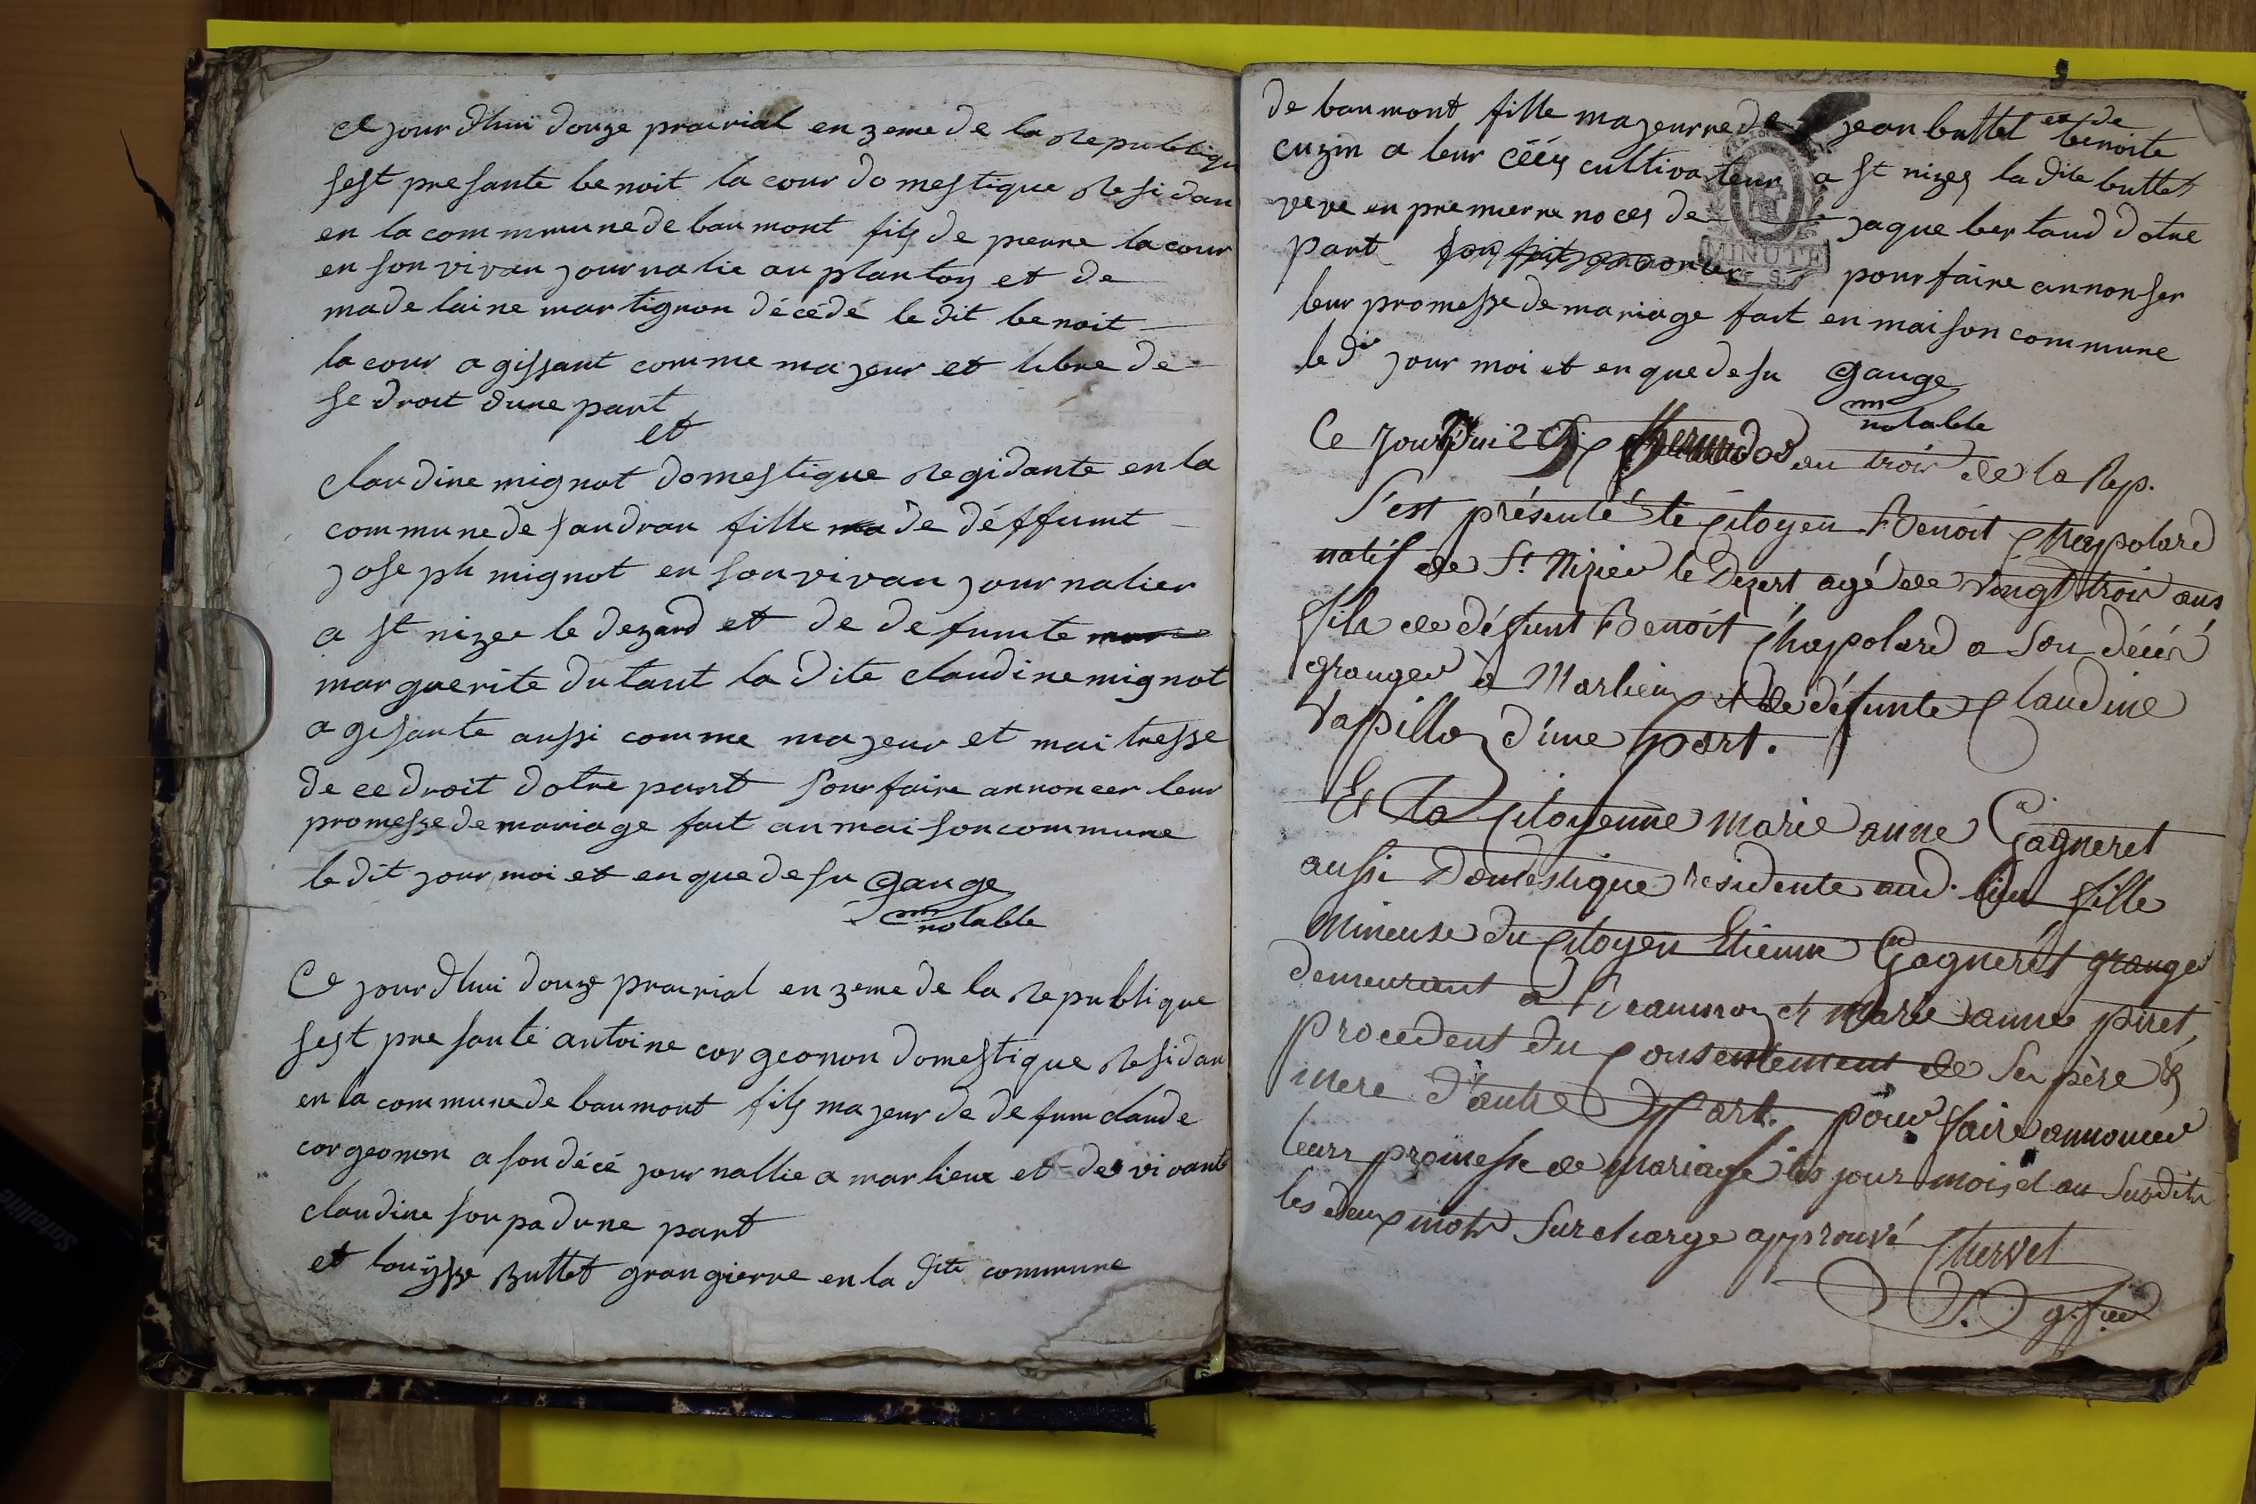 Ce jour dhui douze prairial en 3eme de la Republiqu
sest presante benoit la cour domestique Residan
en la commmune de baumont fils de pierre la cour
en son vivan journalie au plantoy et de
madelaine martignon décédé le dit benoit
la cour agissant comme majeur et libre de
se droit dune part
et
claudine mignot domestique Regidante en la
commune de sandran fille de déffumt
joseph mignot en son vivan journalier
a st nizee le dezard et de defunte
marguerite dutant la dite claudine mignot
agisante aussi comme majeur et maitresse
de ce droit dotre part pour faire annoncer leur
promesse de mariage fait an maison commune
le dit jour moi et en que desu Gauge
notable
Ce jour dhui douze prairial en 3eme de la Republique
sest presanté antoine corgeonon domestique Residan
en la commune de baumont fils majeur de defum claude
corgeonon a son décé journallie a marlieux et de vivante
claudine soupa dune part
et louisse Buttet grangierre en la dite commune
de baumont fille majeurre de jean buttet et de
benoite
cuzin a leur céés cultivateur a st nizes la dite buttet
veve en premierre noces de jaque bertaud dotre
part pour faire annonser
leur promesse de mariage fait en maison commune
le dit jour moi et en que desu Gauge
notable
Ce jourd'hui 29 thermidor an trois de la Rep.
S'est présenté le Citoyen Benoit Chapolard
natif de St. Nizier le Dezert agé de vingt trois ans
fils de défunt Benoit Chapolard a son décès
granger à Marlieux et de défunte Claudine
Vapillon d'une part.
Et la Citoyenne marie anne Gagneret
aussi Domestique residente aud. lieu fille
mineure du Citoyen Etienne Gagneret granger
demeurant à Beaumon et marie anne piret,
procedent du Consentement de Ses père &
mere d'autre Part. pour faire annoncer
leurs promesse de mariage les jour mois et an Susdits
les deux mots Surcharge approuvé Chervet
MINUTE